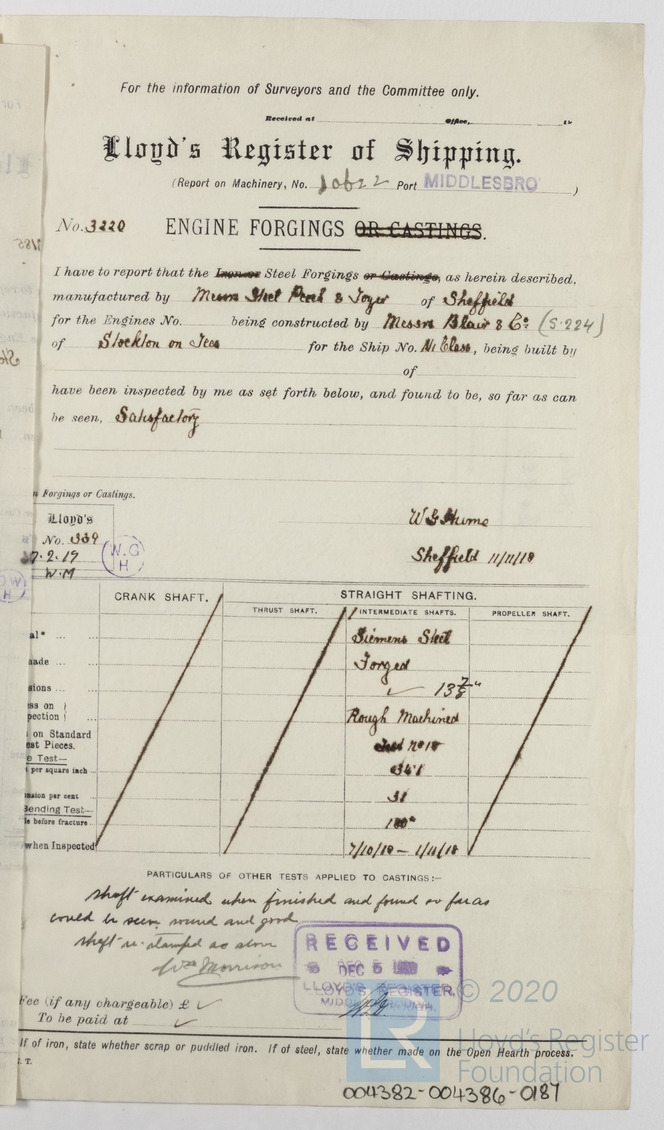 For the information of Surveyors and the Committee only.
Received at Office, 19
Lloyd's Register of Shipping.
(Report on Machinery, No. 10622 Port MIDDLESBRO')
No. 3220 ENGINE FORGINGS OR CASTINGS.
I have to report that the Iron or Steel Forgings or Castings, as herein described,
manufactured by Messrs Steel Peech & Tozer of Sheffield
for the Engines No. being constructed by Messrs Blair & Co. (S.224)
of Stockton on Tees for the Ship No. N. Class, being built by
of
have been inspected by me as set forth below, and found to be, so far as can
be seen, Satisfactory
Forgings or Castings.
Lloyd's
No. 339
7.2.19
W.M
W.G
H
W G Hume
Sheffield 11/11/18
CRANK SHAFT. STRAIGHT SHAFTING.
THRUST SHAFT. INTERMEDIATE SHAFTS. PROPELLER SHAFT.
al* Siemens Steel
made Forged
sions 13 7/8"
ss on
pection Rough Machined
on Standard
est Pieces. Test No 18
e Test—
per square inch 34.1
nsion per cent 31
Bending Test—
le before fracture 180°
when Inspected 7/10/18 – 1/11/18
PARTICULARS OF OTHER TESTS APPLIED TO CASTINGS:—
Shaft examined when finished and found so far as
could be seen sound and good
Shaft re-stamped as above
Wm Morrison
RECEIVED
DEC 5
LLOYD'S REGISTER,
Fee (if any chargeable) £
To be paid at
If of iron, state whether scrap or puddled iron. If of steel, state whether made on the Open Hearth process.
I. T.
© 2020
LR
Lloyd's Register
Foundation
004382-004386-0187